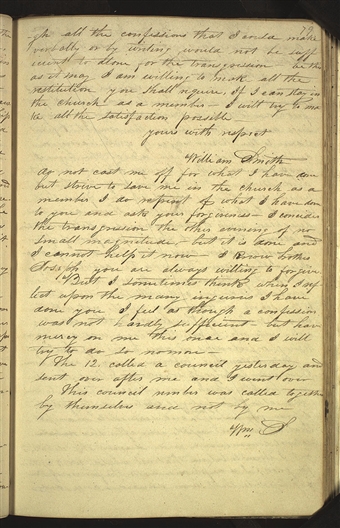 all the confessions that I could make
verbally or by writing would not be suff
icient to atone for the transgression be this
as it may I am willing to make all the
restitution you shall require, If I can stay in
the church as a member - I will try to ma
ke all the satisfaction possible
yours with respect
William Smith
Do not cast me off for what I have done
but strive to save me in the church as a
member I do repent of what I have done
to you and ask your forgiveness - I consider
the transgression the other evening of no
small magnitude, - but it is done and
I cannot help it now - I know brother
Joseph you are always willing to forgive
But I sometimes think when I ref
lect upon the many injuries I have
done you I feel as though a confession
was not hardly sufficient - but have
mercy on me this once and I will
try to do so no more -
The 12. called a council yesterday and
sent over after me and I went over
This council was called togeth
by themselves and not by me
Wm S